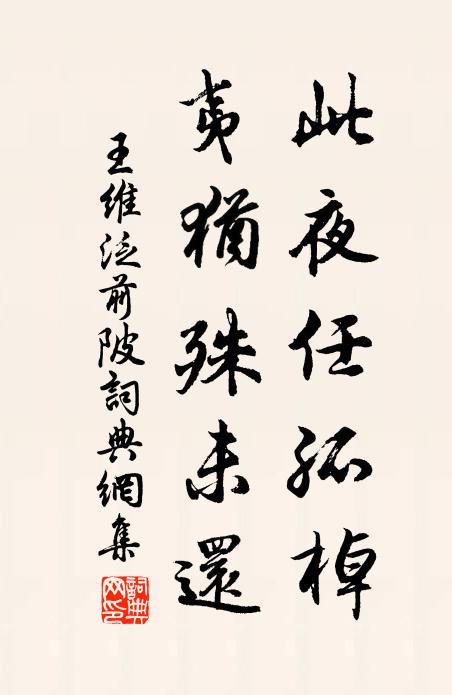 此夜任孤棹
夷猶殊未還
王維泛前陂詞典網集
詞典網印